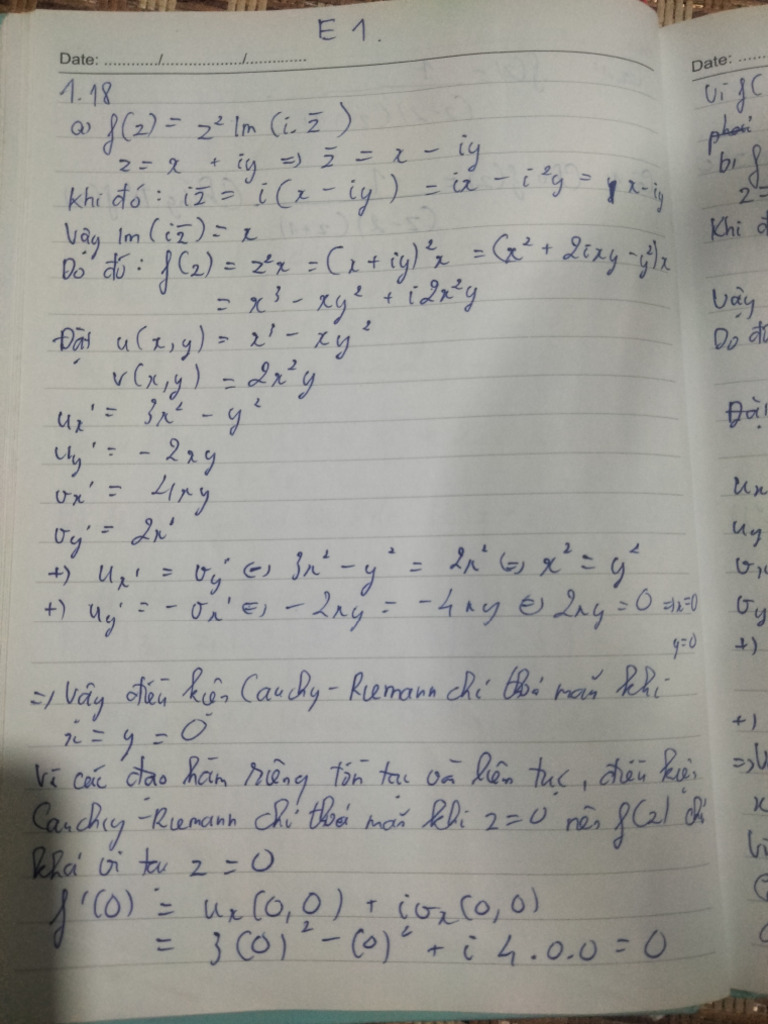 E 1.
Date: ............/................./.............
1.18
a) f(z) = z² Im (i. z̄ )
z = x + iy => z̄ = x - iy
Khi đó : i z̄ = i(x - iy) = ix - i²y = y x - iy
Vậy Im(i z̄) = x
Do đó : f(z) = z²x = (x + iy)²x = (x² + 2ixy - y²)x
= x³ - xy² + i2x²y
Đặt u(x,y) = x³ - xy²
v(x,y) = 2x²y
ux' = 3x² - y²
uy' = - 2xy
vx' = 4xy
vy' = 2x²
+) ux' = vy' <=> 3x² - y² = 2x² <=> x² = y²
+) uy' = - vx' <=> - 2xy = - 4xy <=> 2xy = 0 => x=0
y=0
=> Vậy điều kiện Cauchy - Riemann chỉ thoả mãn khi
x = y = 0
Vì các đạo hàm riêng tồn tại và liên tục, điều kiện
Cauchy - Riemann chỉ thoả mãn khi z = 0 nên f(z) chỉ
khả vi tại z = 0
f'(0) = ux(0,0) + ivx(0,0)
= 3(0)² - (0)² + i 4.0.0 = 0
Date: .....
Vì f(
phải
b) f
z =
Khi đ
Vậy
Do đ
Đặt
ux
uy
vx
vy
+)
+)
=> V
x
Vì
C